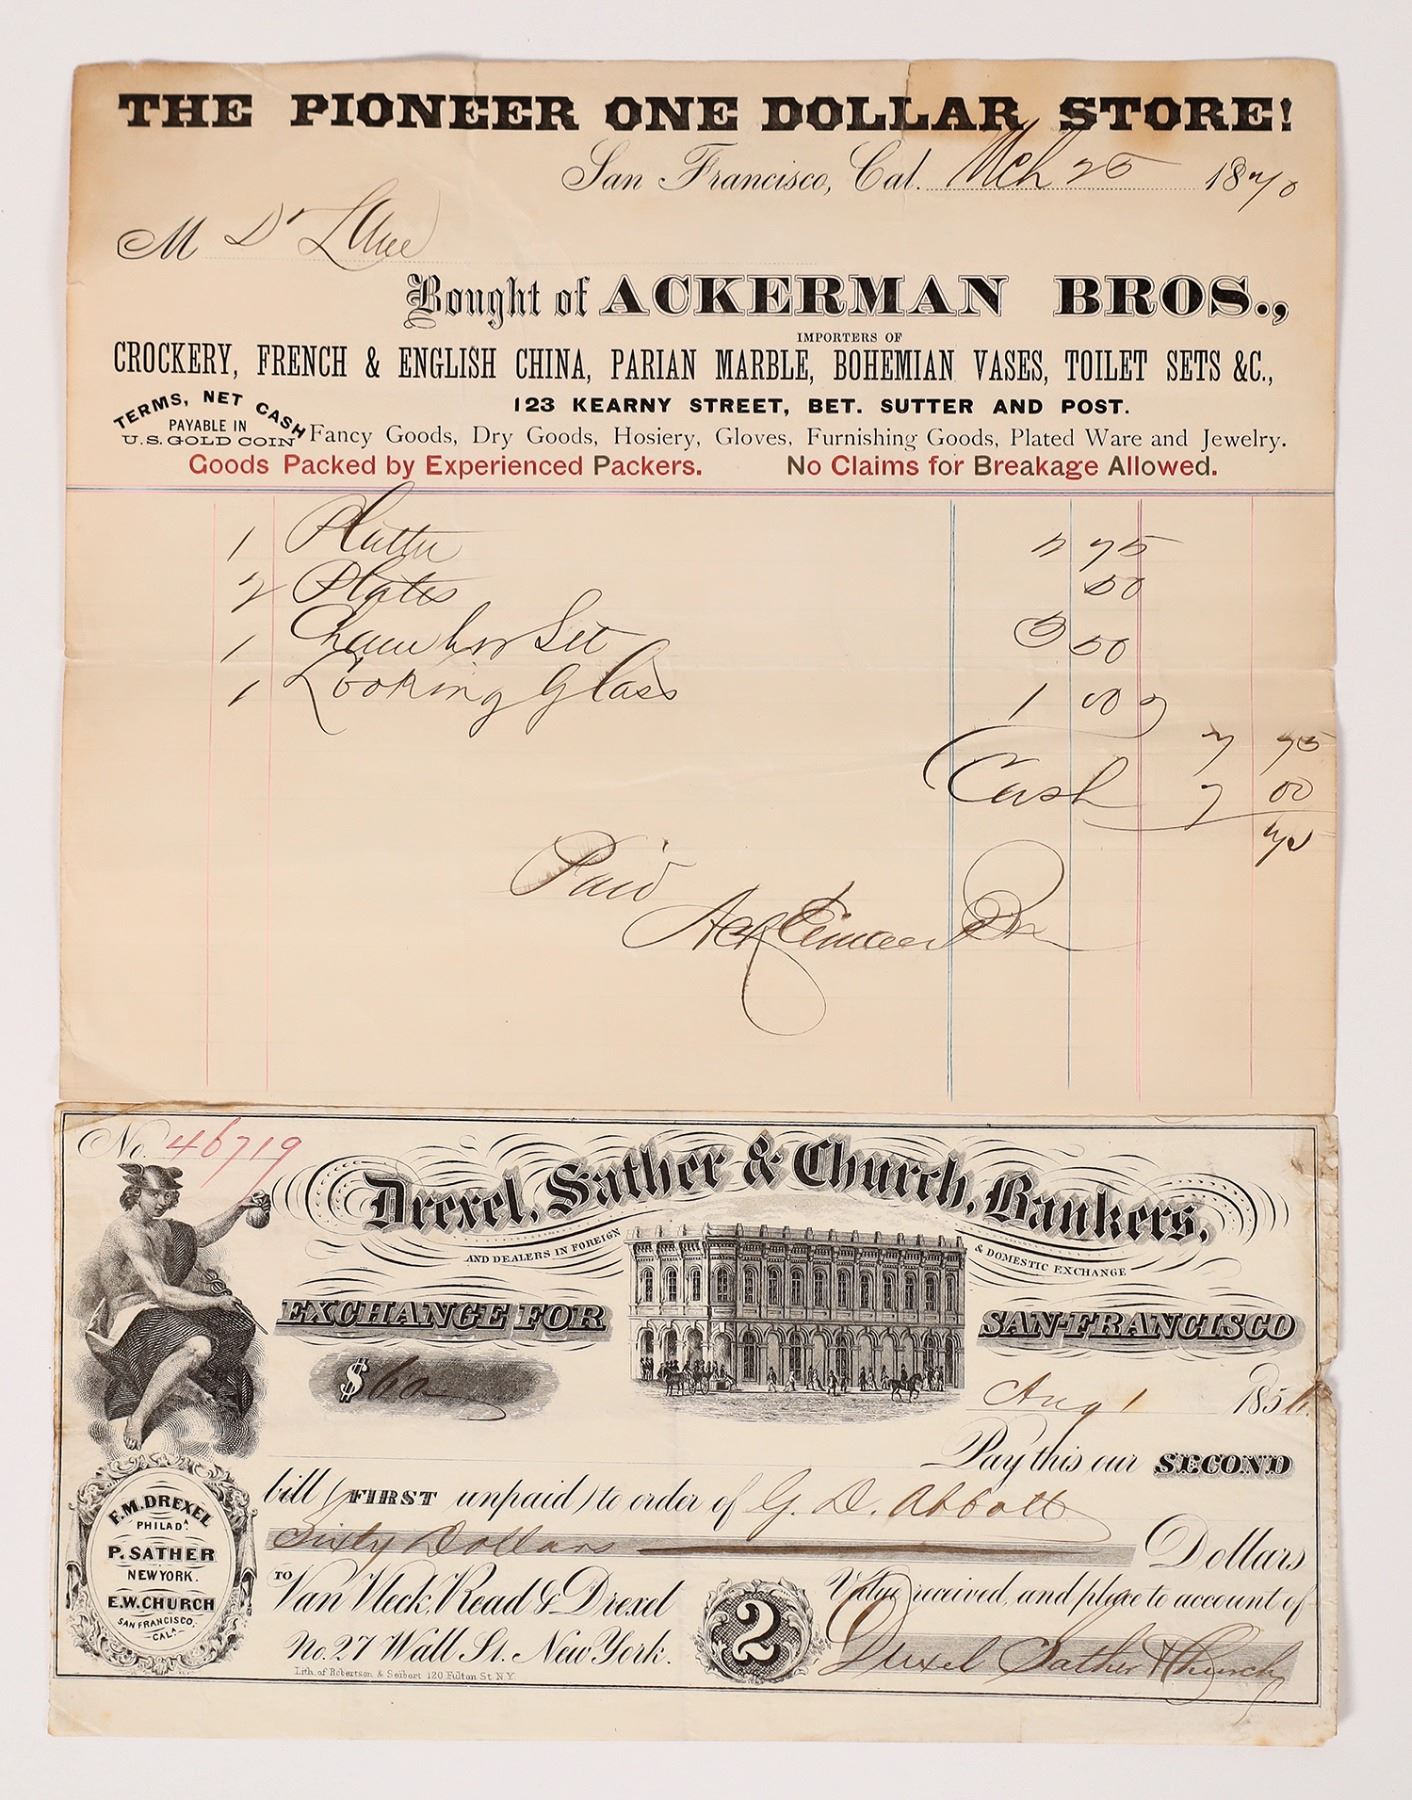 THE PIONEER ONE DOLLAR STORE!
San Francisco, Cal. Mch 25 1870
M Dr
Bought of ACKERMAN BROS.,
IMPORTERS OF
CROCKERY, FRENCH & ENGLISH CHINA, PARIAN MARBLE, BOHEMIAN VASES, TOILET SETS &C.,
TERMS, NET CASH
PAYABLE IN
U.S. GOLD COIN
123 KEARNY STREET, BET. SUTTER AND POST.
Fancy Goods, Dry Goods, Hosiery, Gloves, Furnishing Goods, Plated Ware and Jewelry.
Goods Packed by Experienced Packers. No Claims for Breakage Allowed.
1 Platter 2 75
2 Plates 50
1 Chamber Set 3 50
1 Looking Glass 1 00
7 75
Cash 7 00
75
Paid
Ackerman Bros
No. 46719
Drexel, Sather & Church, Bankers,
AND DEALERS IN FOREIGN & DOMESTIC EXCHANGE
EXCHANGE FOR SAN-FRANCISCO
$60
Aug 1 1856
Pay this our SECOND
bill (FIRST unpaid) to order of G. D. Abbott
Sixty Dollars Dollars
F.M. DREXEL
PHILADA.
P. SATHER
NEW YORK.
E.W. CHURCH
SAN FRANCISCO,
CALA.
TO Van Vleck, Read & Drexel
No. 27 Wall St. New York.
2
Value received, and place to account of
Drexel Sather & Church
Lith. of Robertson & Seibert 120 Fulton St. N.Y.